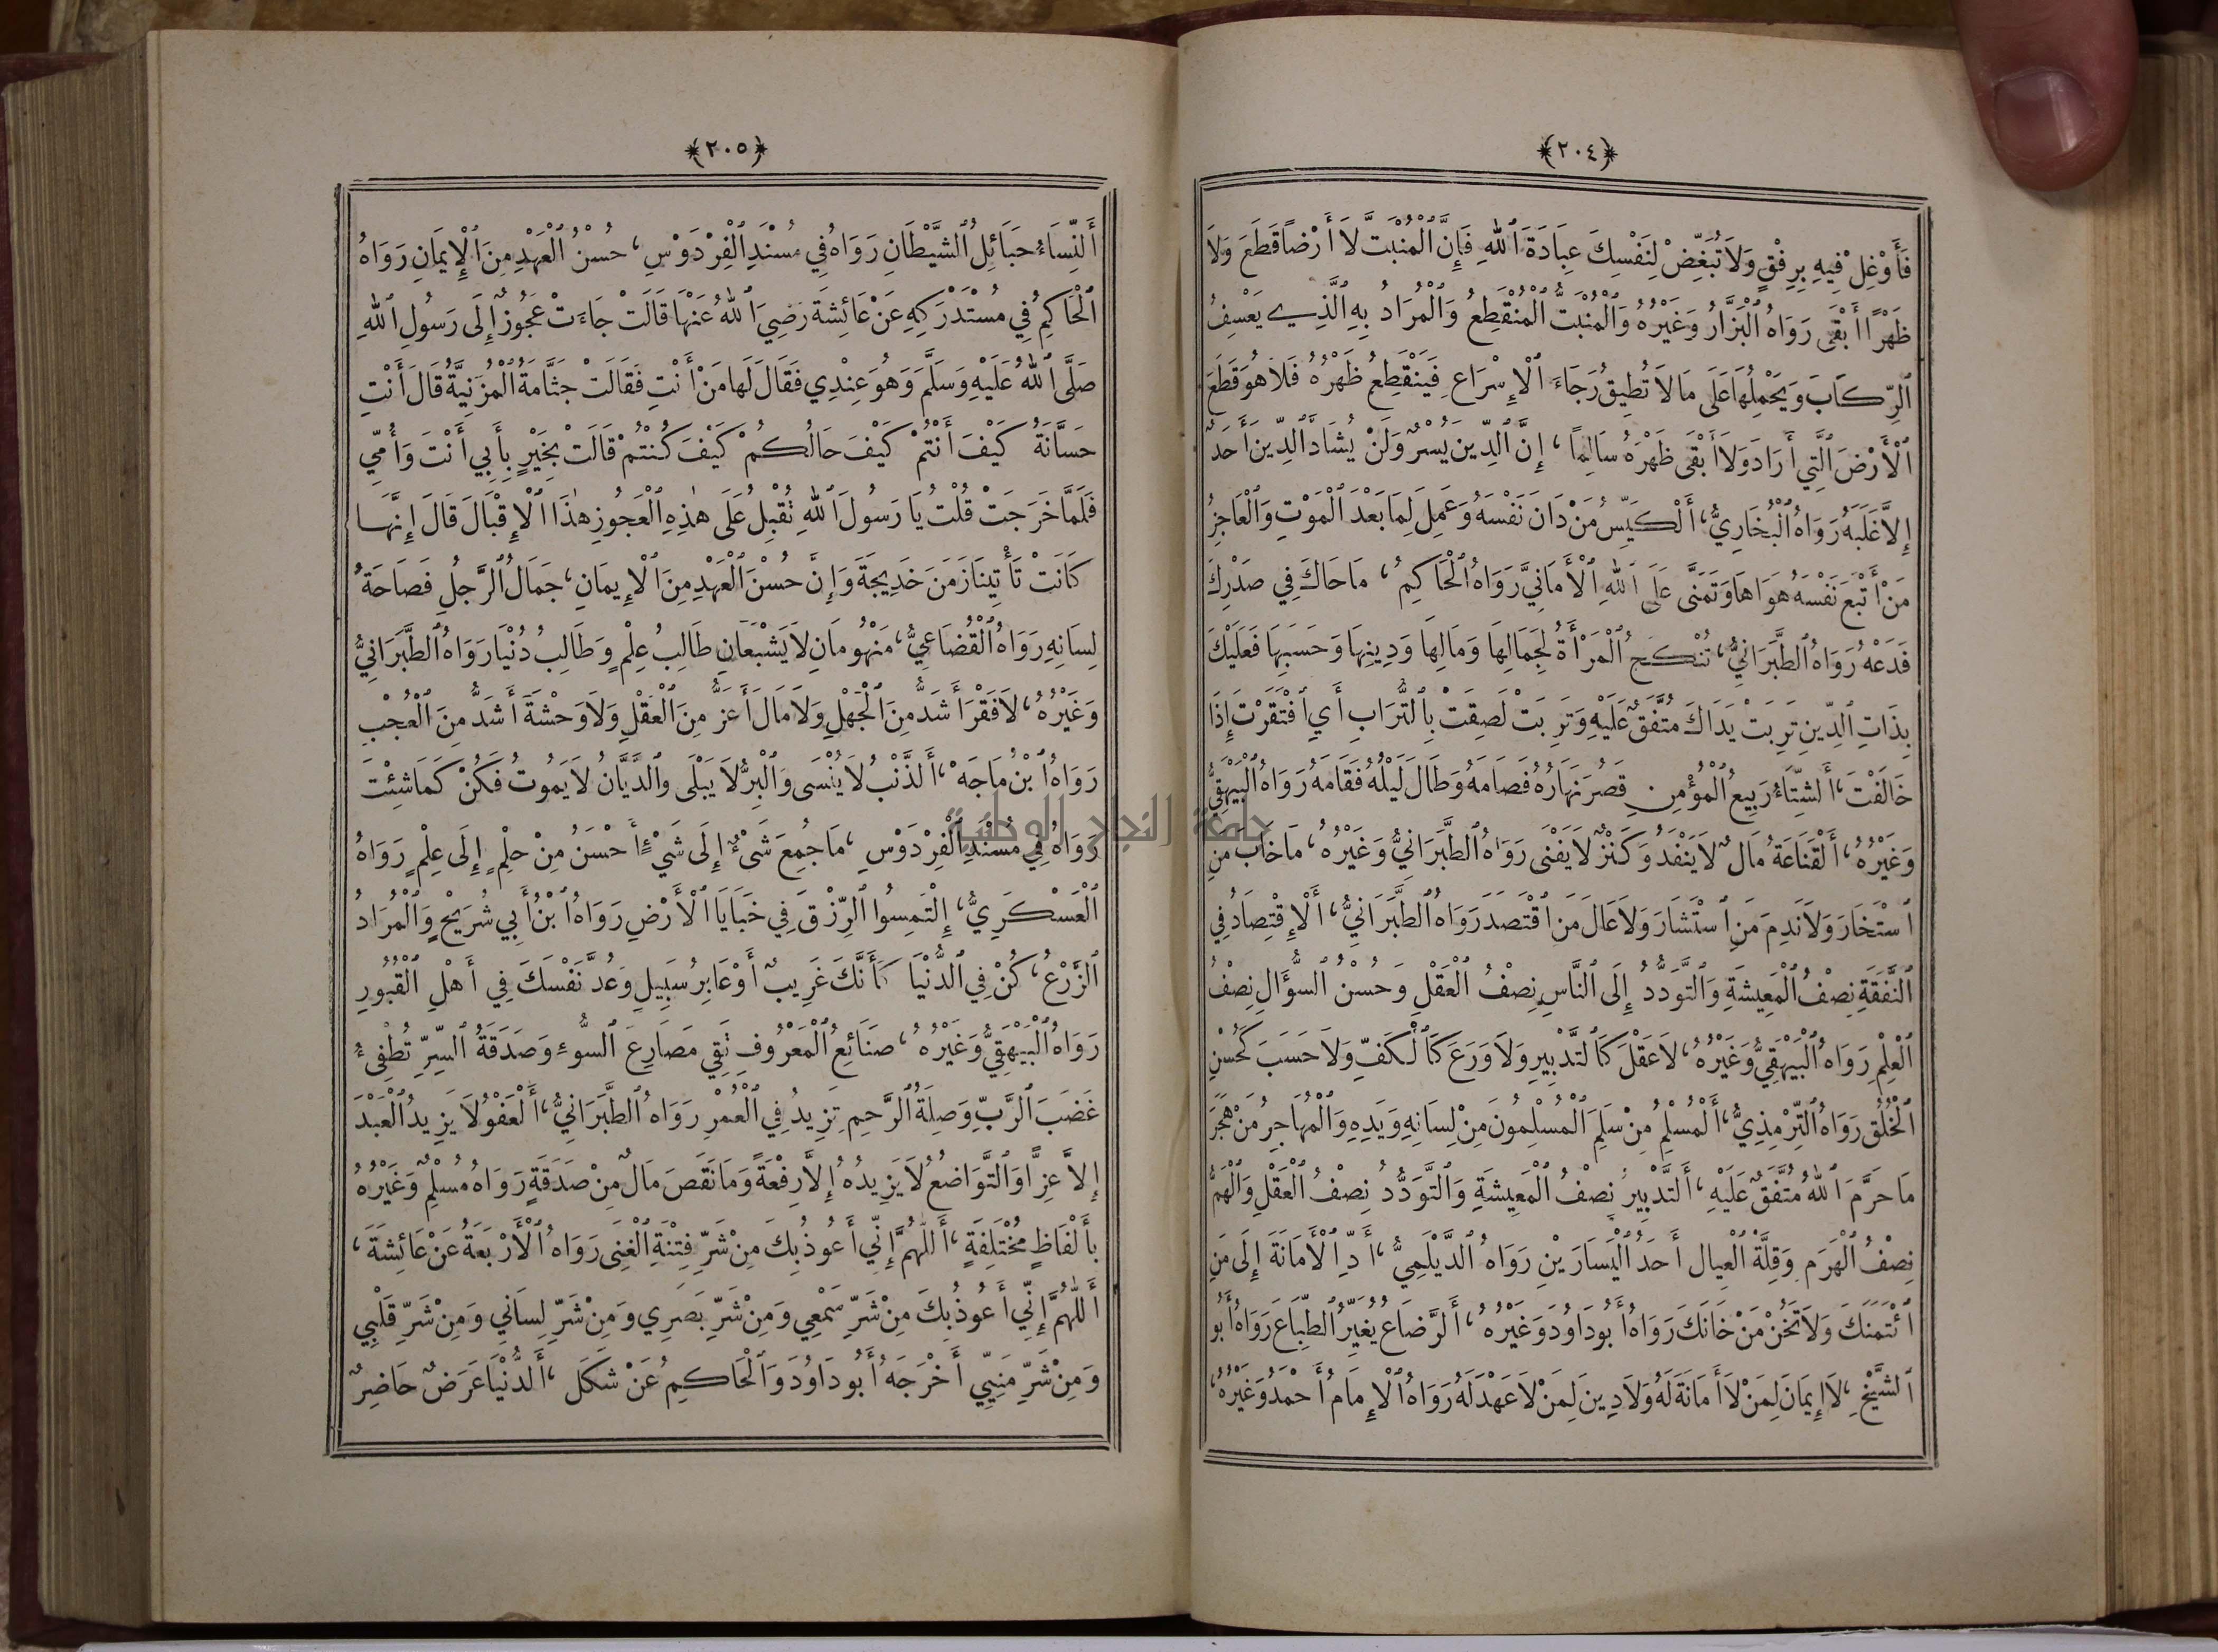 ﴿٢٠٤﴾
فَأَوْغِلْ فِيهِ بِرِفْقٍ وَلَا تُبَغِّضْ لِنَفْسِكَ عِبَادَةَ ٱللهِ فَإِنَّ ٱلْمُنْبَتَّ لَا أَرْضًا قَطَعَ وَلَا
ظَهْرًا أَبْقَى رَوَاهُ ٱلْبَزَّارُ وَغَيْرُهُ وَٱلْمُنْبَتُّ ٱلْمُنْقَطِعُ وَٱلْمُرَادُ بِهِ ٱلَّذِي يَعْسِفُ
ٱلرِّكَابَ وَيَحْمِلُهَا عَلَى مَا لَا تُطِيقُ رَجَاءَ ٱلْإِسْرَاعِ فَيَنْقَطِعُ ظَهْرُهُ فَلَا هُوَ قَطَعَ
ٱلْأَرْضَ ٱلَّتِي أَرَادَ وَلَا أَبْقَى ظَهْرَهُ سَالِمًا ، إِنَّ ٱلدِّينَ يُسْرٌ وَلَنْ يُشَادَّ ٱلدِّينَ أَحَدٌ
إِلَّا غَلَبَهُ رَوَاهُ ٱلْبُخَارِيُّ ، أَلْكَيِّسُ مَنْ دَانَ نَفْسَهُ وَعَمِلَ لِمَا بَعْدَ ٱلْمَوْتِ وَٱلْعَاجِزُ
مَنْ أَتْبَعَ نَفْسَهُ هَوَاهَا وَتَمَنَّى عَلَى ٱللهِ ٱلْأَمَانِيَّ رَوَاهُ ٱلْحَاكِمُ ، مَا حَاكَ فِي صَدْرِكَ
فَدَعْهُ رَوَاهُ ٱلطَّبَرَانِيُّ ، تُنْكَحُ ٱلْمَرْأَةُ لِجَمَالِهَا وَمَالِهَا وَدِينِهَا وَحَسَبِهَا فَعَلَيْكَ
بِذَاتِ ٱلدِّينِ تَرِبَتْ يَدَاكَ مُتَّفَقٌ عَلَيْهِ وَتَرِبَتْ لَصِقَتْ بِٱلتُّرَابِ أَيِ ٱفْتَقَرْتَ إِذَا
خَالَفْتَ ، أَلشِّتَاءُ رَبِيعُ ٱلْمُؤْمِنِ قَصُرَ نَهَارُهُ فَصَامَهُ وَطَالَ لَيْلُهُ فَقَامَهُ رَوَاهُ ٱلْبَيْهَقِيُّ
وَغَيْرُهُ ، أَلْقَنَاعَةُ مَالٌ لَا يَنْفَدُ وَكَنْزٌ لَا يَفْنَى رَوَاهُ ٱلطَّبَرَانِيُّ وَغَيْرُهُ ، مَا خَابَ مَنِ
ٱسْتَخَارَ وَلَا نَدِمَ مَنِ ٱسْتَشَارَ وَلَا عَالَ مَنِ ٱقْتَصَدَ رَوَاهُ ٱلطَّبَرَانِيُّ ، أَلْإِقْتِصَادُ فِي
ٱلنَّفَقَةِ نِصْفُ ٱلْمَعِيشَةِ وَٱلتَّوَدُّدُ إِلَى ٱلنَّاسِ نِصْفُ ٱلْعَقْلِ وَحُسْنُ ٱلسُّؤَالِ نِصْفُ
ٱلْعِلْمِ رَوَاهُ ٱلْبَيْهَقِيُّ وَغَيْرُهُ ، لَا عَقْلَ كَٱلتَّدْبِيرِ وَلَا وَرَعَ كَٱلْكَفِّ وَلَا حَسَبَ كَحُسْنِ
ٱلْخُلُقِ رَوَاهُ ٱلتِّرْمِذِيُّ ، أَلْمُسْلِمُ مَنْ سَلِمَ ٱلْمُسْلِمُونَ مِنْ لِسَانِهِ وَيَدِهِ وَٱلْمُهَاجِرُ مَنْ هَجَرَ
مَا حَرَّمَ ٱللهُ مُتَّفَقٌ عَلَيْهِ ، أَلتَّدْبِيرُ نِصْفُ ٱلْمَعِيشَةِ وَٱلتَّوَدُّدُ نِصْفُ ٱلْعَقْلِ وَٱلْهَمُّ
نِصْفُ ٱلْهَرَمِ وَقِلَّةُ ٱلْعِيَالِ أَحَدُ ٱلْيَسَارَيْنِ رَوَاهُ ٱلدَّيْلَمِيُّ ، أَدِّ ٱلْأَمَانَةَ إِلَى مَنِ
ٱئْتَمَنَكَ وَلَا تَخُنْ مَنْ خَانَكَ رَوَاهُ أَبُو دَاوُدَ وَغَيْرُهُ ، أَلرَّضَاعُ يُغَيِّرُ ٱلطِّبَاعَ رَوَاهُ أَبُو
ٱلشَّيْخِ ، لَا إِيمَانَ لِمَنْ لَا أَمَانَةَ لَهُ وَلَا دِينَ لِمَنْ لَا عَهْدَ لَهُ رَوَاهُ ٱلْإِمَامُ أَحْمَدُ وَغَيْرُهُ ،
﴿٢٠٥﴾
أَلنِّسَاءُ حَبَائِلُ ٱلشَّيْطَانِ رَوَاهُ فِي مُسْنَدِ ٱلْفِرْدَوْسِ ، حُسْنُ ٱلْعَهْدِ مِنَ ٱلْإِيمَانِ رَوَاهُ
ٱلْحَاكِمُ فِي مُسْتَدْرَكِهِ عَنْ عَائِشَةَ رَضِيَ ٱللهُ عَنْهَا قَالَتْ جَاءَتْ عَجُوزٌ إِلَى رَسُولِ ٱللهِ
صَلَّى ٱللهُ عَلَيْهِ وَسَلَّمَ وَهُوَ عِنْدِي فَقَالَ لَهَا مَنْ أَنْتِ فَقَالَتْ جَثَّامَةُ ٱلْمُزَنِيَّةُ قَالَ أَنْتِ
حَسَّانَةُ كَيْفَ أَنْتُمْ كَيْفَ حَالُكُمْ كَيْفَ كُنْتُمْ قَالَتْ بِخَيْرٍ بِأَبِي أَنْتَ وَأُمِّي
فَلَمَّا خَرَجَتْ قُلْتُ يَا رَسُولَ ٱللهِ تُقْبِلُ عَلَى هٰذِهِ ٱلْعَجُوزِ هٰذَا ٱلْإِقْبَالَ قَالَ إِنَّهَا
كَانَتْ تَأْتِينَا زَمَنَ خَدِيجَةَ وَإِنَّ حُسْنَ ٱلْعَهْدِ مِنَ ٱلْإِيمَانِ ، جَمَالُ ٱلرَّجُلِ فَصَاحَةُ
لِسَانِهِ رَوَاهُ ٱلْقُضَاعِيُّ ، مَنْهُومَانِ لَا يَشْبَعَانِ طَالِبُ عِلْمٍ وَطَالِبُ دُنْيَا رَوَاهُ ٱلطَّبَرَانِيُّ
وَغَيْرُهُ ، لَا فَقْرَ أَشَدُّ مِنَ ٱلْجَهْلِ وَلَا مَالَ أَعَزُّ مِنَ ٱلْعَقْلِ وَلَا وَحْشَةَ أَشَدُّ مِنَ ٱلْعُجْبِ
رَوَاهُ ٱبْنُ مَاجَهْ ، أَلذَّنْبُ لَا يُنْسَى وَٱلْبِرُّ لَا يَبْلَى وَٱلدَّيَّانُ لَا يَمُوتُ فَكُنْ كَمَا شِئْتَ
رَوَاهُ فِي مُسْنَدِ ٱلْفِرْدَوْسِ ، مَا جُمِعَ شَيْءٌ إِلَى شَيْءٍ أَحْسَنُ مِنْ حِلْمٍ إِلَى عِلْمٍ رَوَاهُ
ٱلْعَسْكَرِيُّ ، إِلْتَمِسُوا ٱلرِّزْقَ فِي خَبَايَا ٱلْأَرْضِ رَوَاهُ ٱبْنُ أَبِي شُرَيْحٍ وَٱلْمُرَادُ
ٱلزَّرْعُ ، كُنْ فِي ٱلدُّنْيَا كَأَنَّكَ غَرِيبٌ أَوْ عَابِرُ سَبِيلٍ وَعُدَّ نَفْسَكَ فِي أَهْلِ ٱلْقُبُورِ
رَوَاهُ ٱلْبَيْهَقِيُّ وَغَيْرُهُ ، صَنَائِعُ ٱلْمَعْرُوفِ تَقِي مَصَارِعَ ٱلسُّوءِ وَصَدَقَةُ ٱلسِّرِّ تُطْفِىءُ
غَضَبَ ٱلرَّبِّ وَصِلَةُ ٱلرَّحِمِ تَزِيدُ فِي ٱلْعُمْرِ رَوَاهُ ٱلطَّبَرَانِيُّ ، أَلْعَفْوُ لَا يَزِيدُ ٱلْعَبْدَ
إِلَّا عِزًّا وَٱلتَّوَاضُعُ لَا يَزِيدُهُ إِلَّا رِفْعَةً وَمَا نَقَصَ مَالٌ مِنْ صَدَقَةٍ رَوَاهُ مُسْلِمٌ وَغَيْرُهُ
بِأَلْفَاظٍ مُخْتَلِفَةٍ ، أَللّٰهُمَّ إِنِّي أَعُوذُ بِكَ مِنْ شَرِّ فِتْنَةِ ٱلْغِنَى رَوَاهُ ٱلْأَرْبَعَةُ عَنْ عَائِشَةَ ،
أَللّٰهُمَّ إِنِّي أَعُوذُ بِكَ مِنْ شَرِّ سَمْعِي وَمِنْ شَرِّ بَصَرِي وَمِنْ شَرِّ لِسَانِي وَمِنْ شَرِّ قَلْبِي
وَمِنْ شَرِّ مَنِيِّي أَخْرَجَهُ أَبُو دَاوُدَ وَٱلْحَاكِمُ عَنْ شَكَلٍ ، أَلدُّنْيَا عَرَضٌ حَاضِرٌ
جامعة النجاح الوطنية